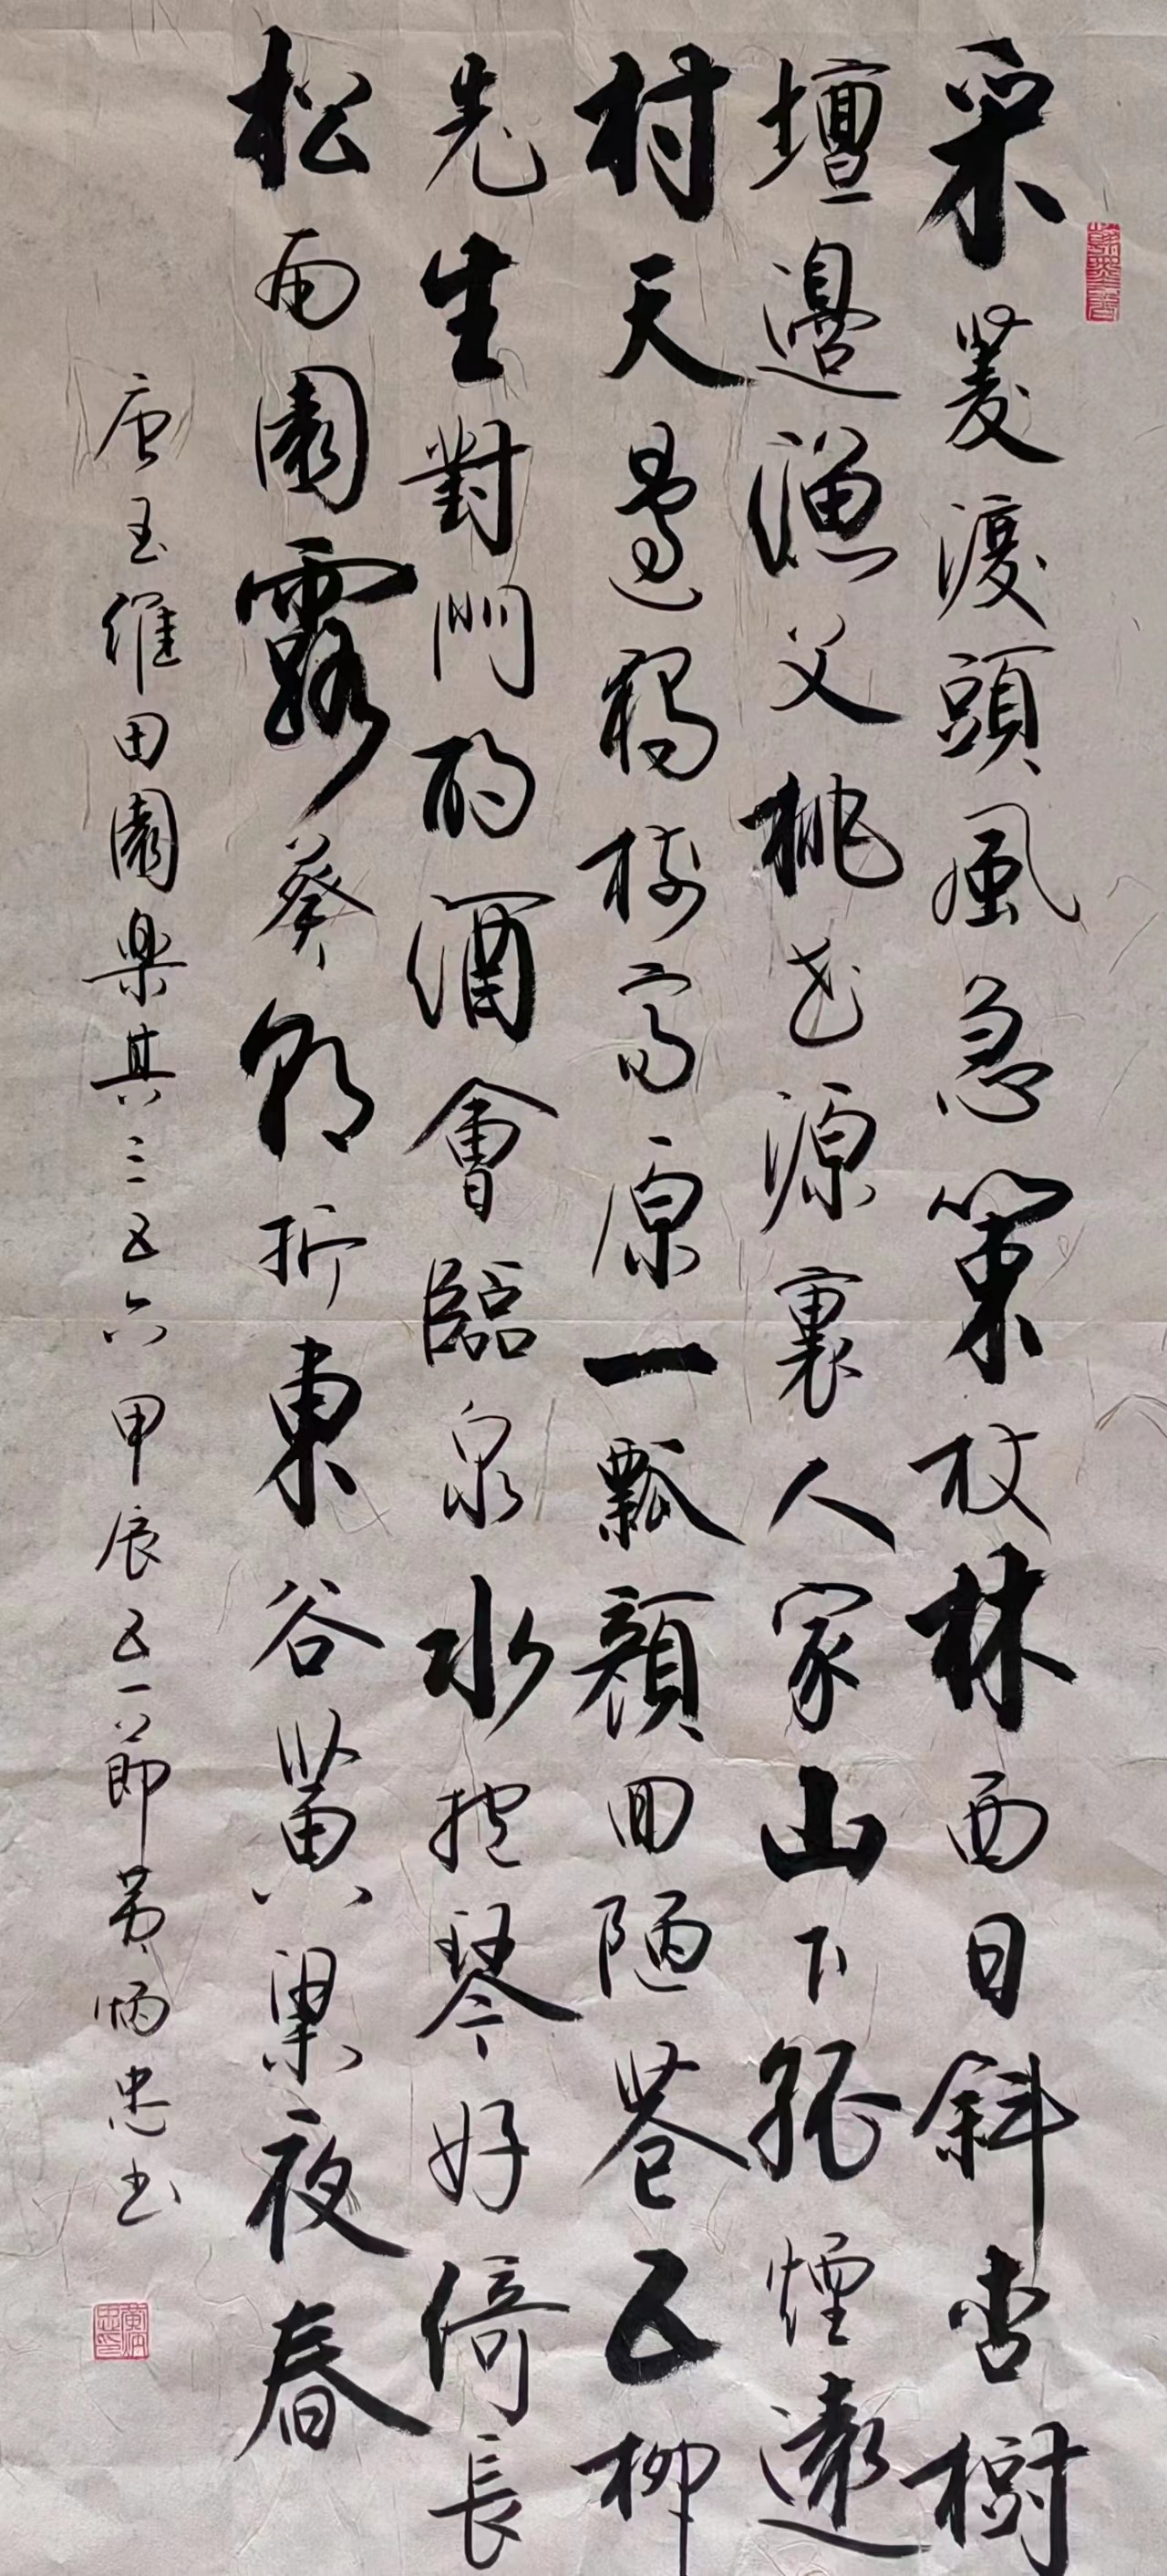 采菱渡頭風急策杖林西日斜杏樹
壇邊漁父桃花源裏人家山下孤煙遠
村天邊獨樹高原一瓢顏回陋巷五柳
先生對門酌酒會臨泉水抱琴好倚長
松南園露葵朝折東谷黃粱夜春
唐王維田園楽其三五六甲辰五一節黄炳忠书